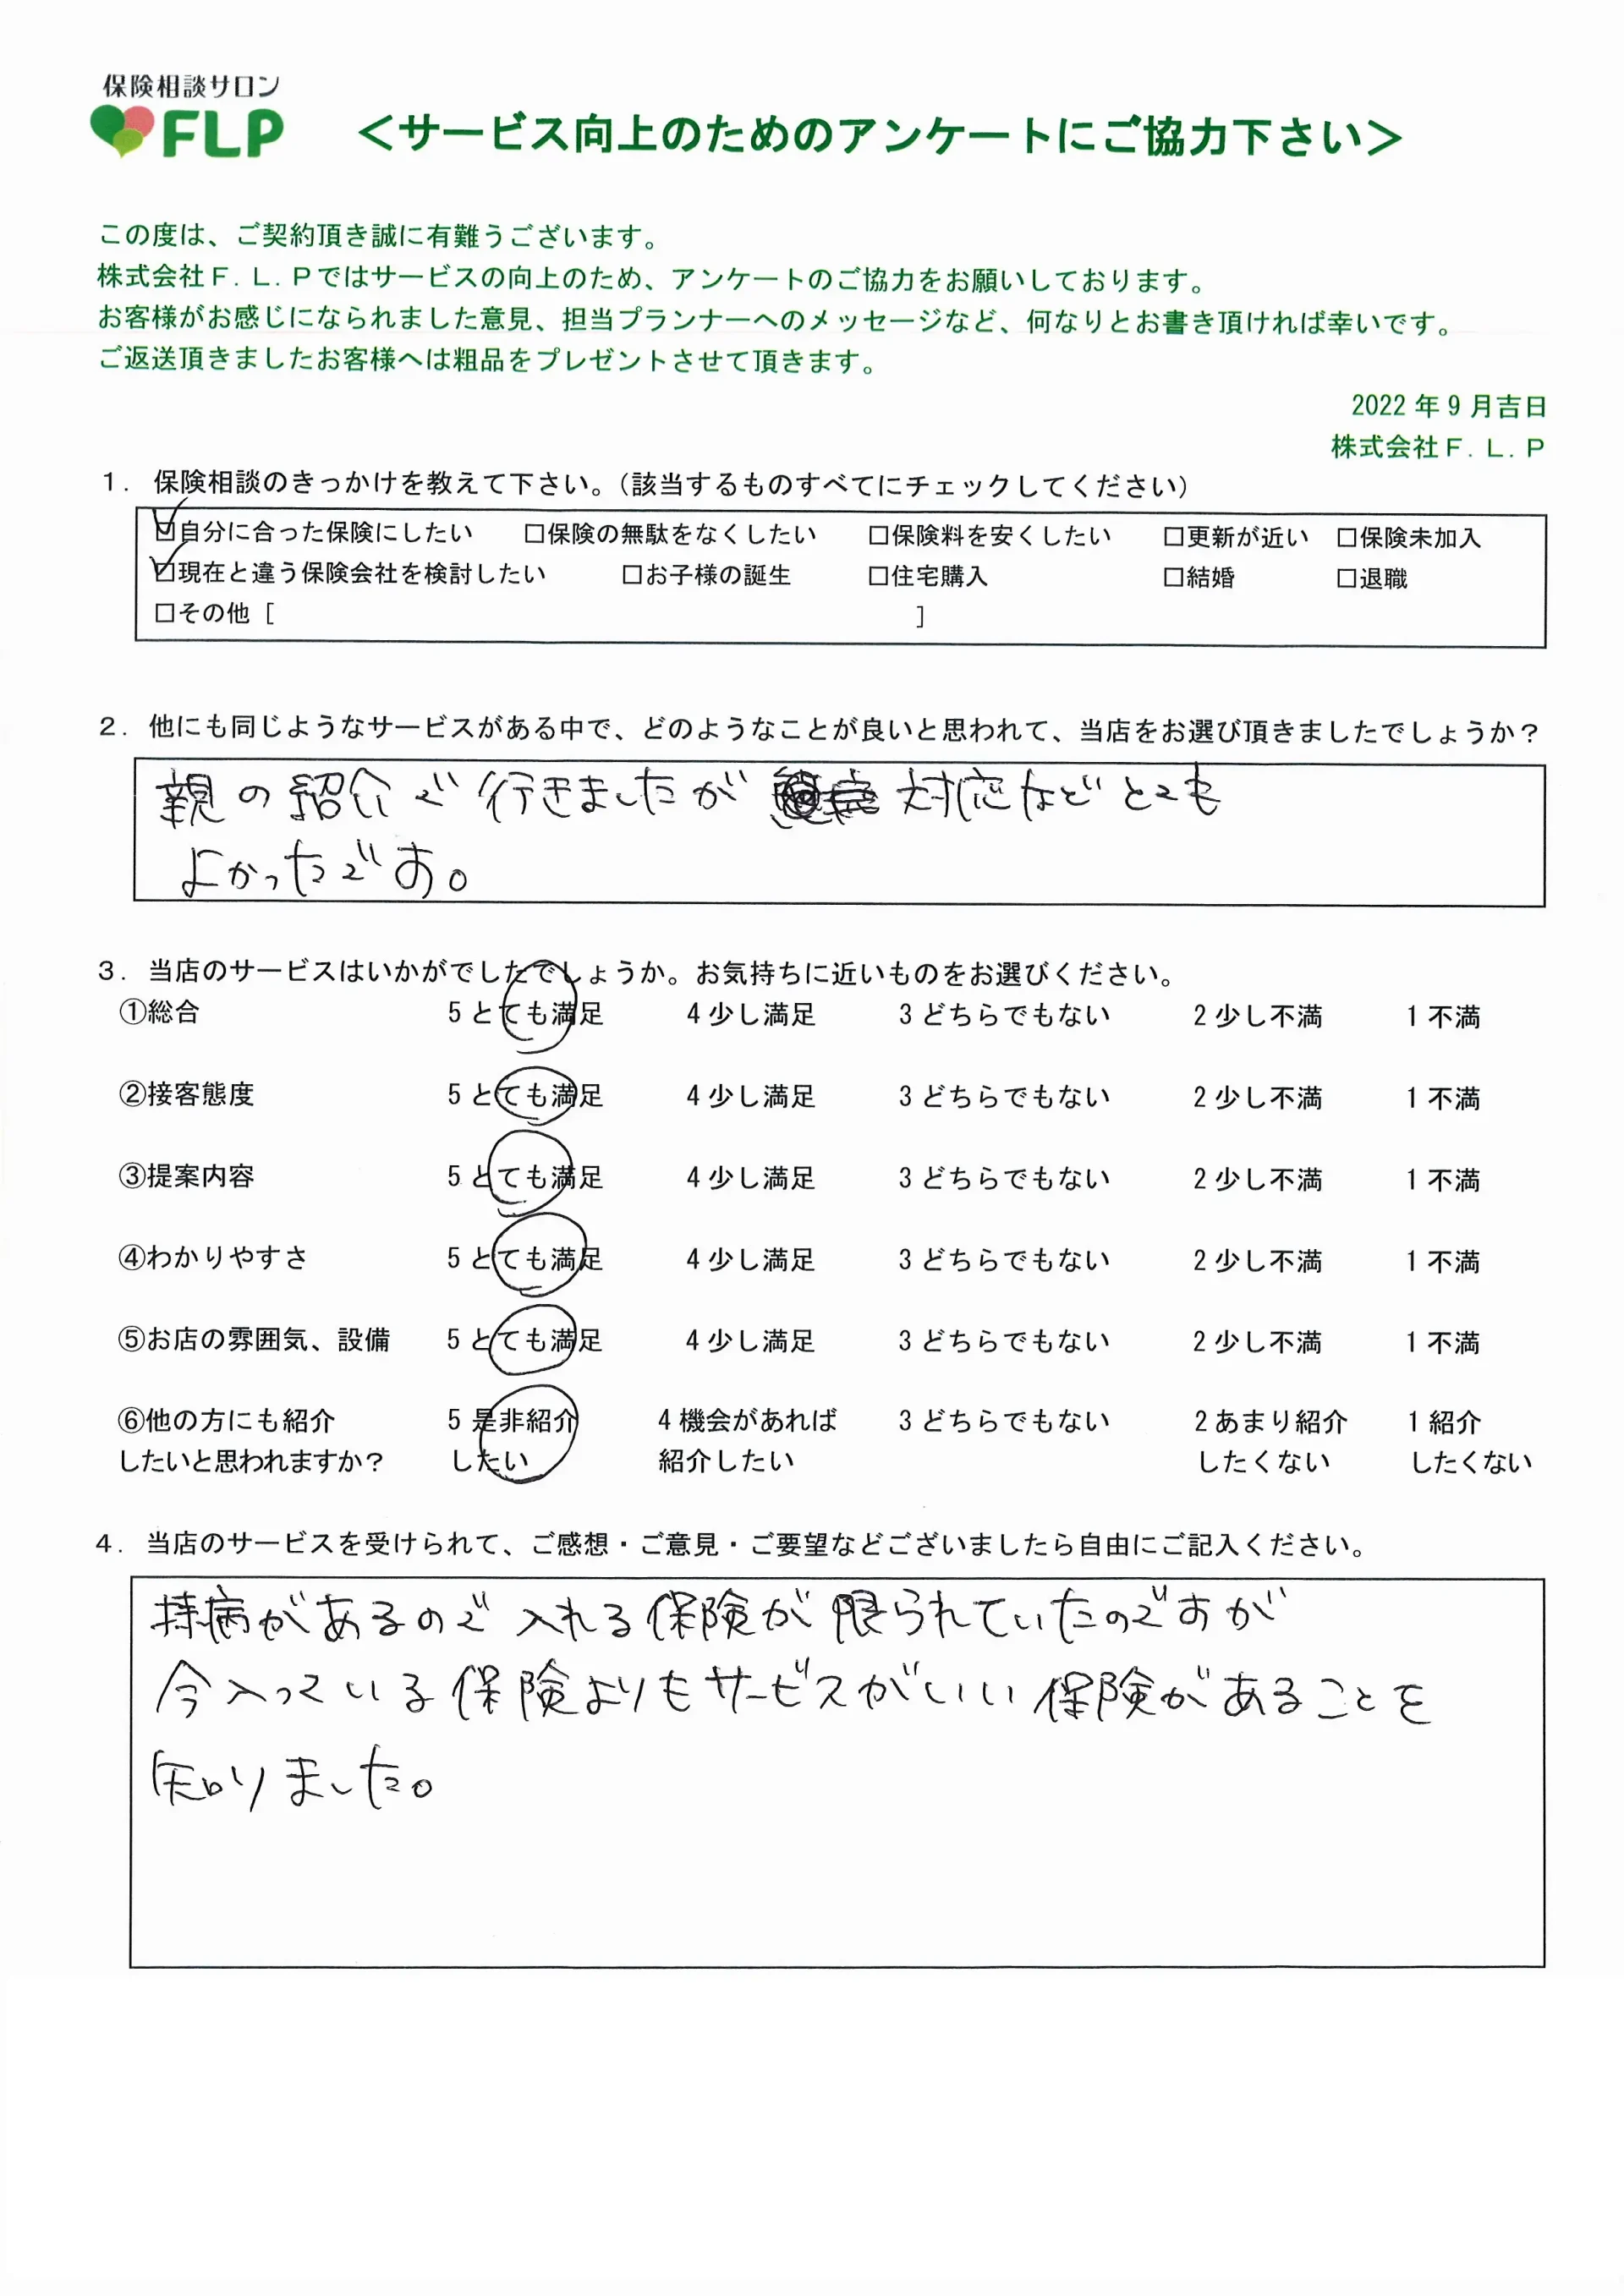 保険相談サロン
FLP
＜サービス向上のためのアンケートにご協力下さい＞
この度は、ご契約頂き誠に有難うございます。
株式会社Ｆ．Ｌ．Ｐではサービスの向上のため、アンケートのご協力をお願いしております。
お客様がお感じになられました意見、担当プランナーへのメッセージなど、何なりとお書き頂ければ幸いです。
ご返送頂きましたお客様へは粗品をプレゼントさせて頂きます。
2022 年 9 月吉日
株式会社Ｆ．Ｌ．Ｐ
１．保険相談のきっかけを教えて下さい。（該当するものすべてにチェックしてください）
☑自分に合った保険にしたい □保険の無駄をなくしたい □保険料を安くしたい □更新が近い □保険未加入
☑現在と違う保険会社を検討したい □お子様の誕生 □住宅購入 □結婚 □退職
□その他［ ］
２．他にも同じようなサービスがある中で、どのようなことが良いと思われて、当店をお選び頂きましたでしょうか？
親の紹介で行きましたが 対応などとても
よかったです。
３．当店のサービスはいかがでしたでしょうか。お気持ちに近いものをお選びください。
①総合 5 とても満足 4 少し満足 3 どちらでもない 2 少し不満 1 不満
②接客態度 5 とても満足 4 少し満足 3 どちらでもない 2 少し不満 1 不満
③提案内容 5 とても満足 4 少し満足 3 どちらでもない 2 少し不満 1 不満
④わかりやすさ 5 とても満足 4 少し満足 3 どちらでもない 2 少し不満 1 不満
⑤お店の雰囲気、設備 5 とても満足 4 少し満足 3 どちらでもない 2 少し不満 1 不満
⑥他の方にも紹介 5 是非紹介 4 機会があれば 3 どちらでもない 2 あまり紹介 1 紹介
したいと思われますか？ したい 紹介したい したくない したくない
４．当店のサービスを受けられて、ご感想・ご意見・ご要望などございましたら自由にご記入ください。
持病があるので入れる保険が限られていたのですが
今入っている保険よりもサービスがいい保険があることを
知りました。